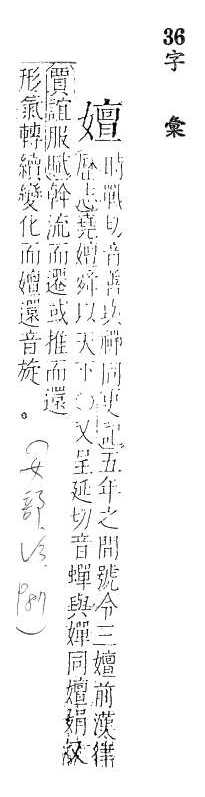 36字 彙
嬗
時戰切音善禪同史記五年之間號令三嬗前漢律
歷志堯嬗舜以天下○又呈延切音蟬與嬋同嬗娟
賈誼服賦斡流而遷或推而還
形氣轉續變化而嬗還音旋。(女部)